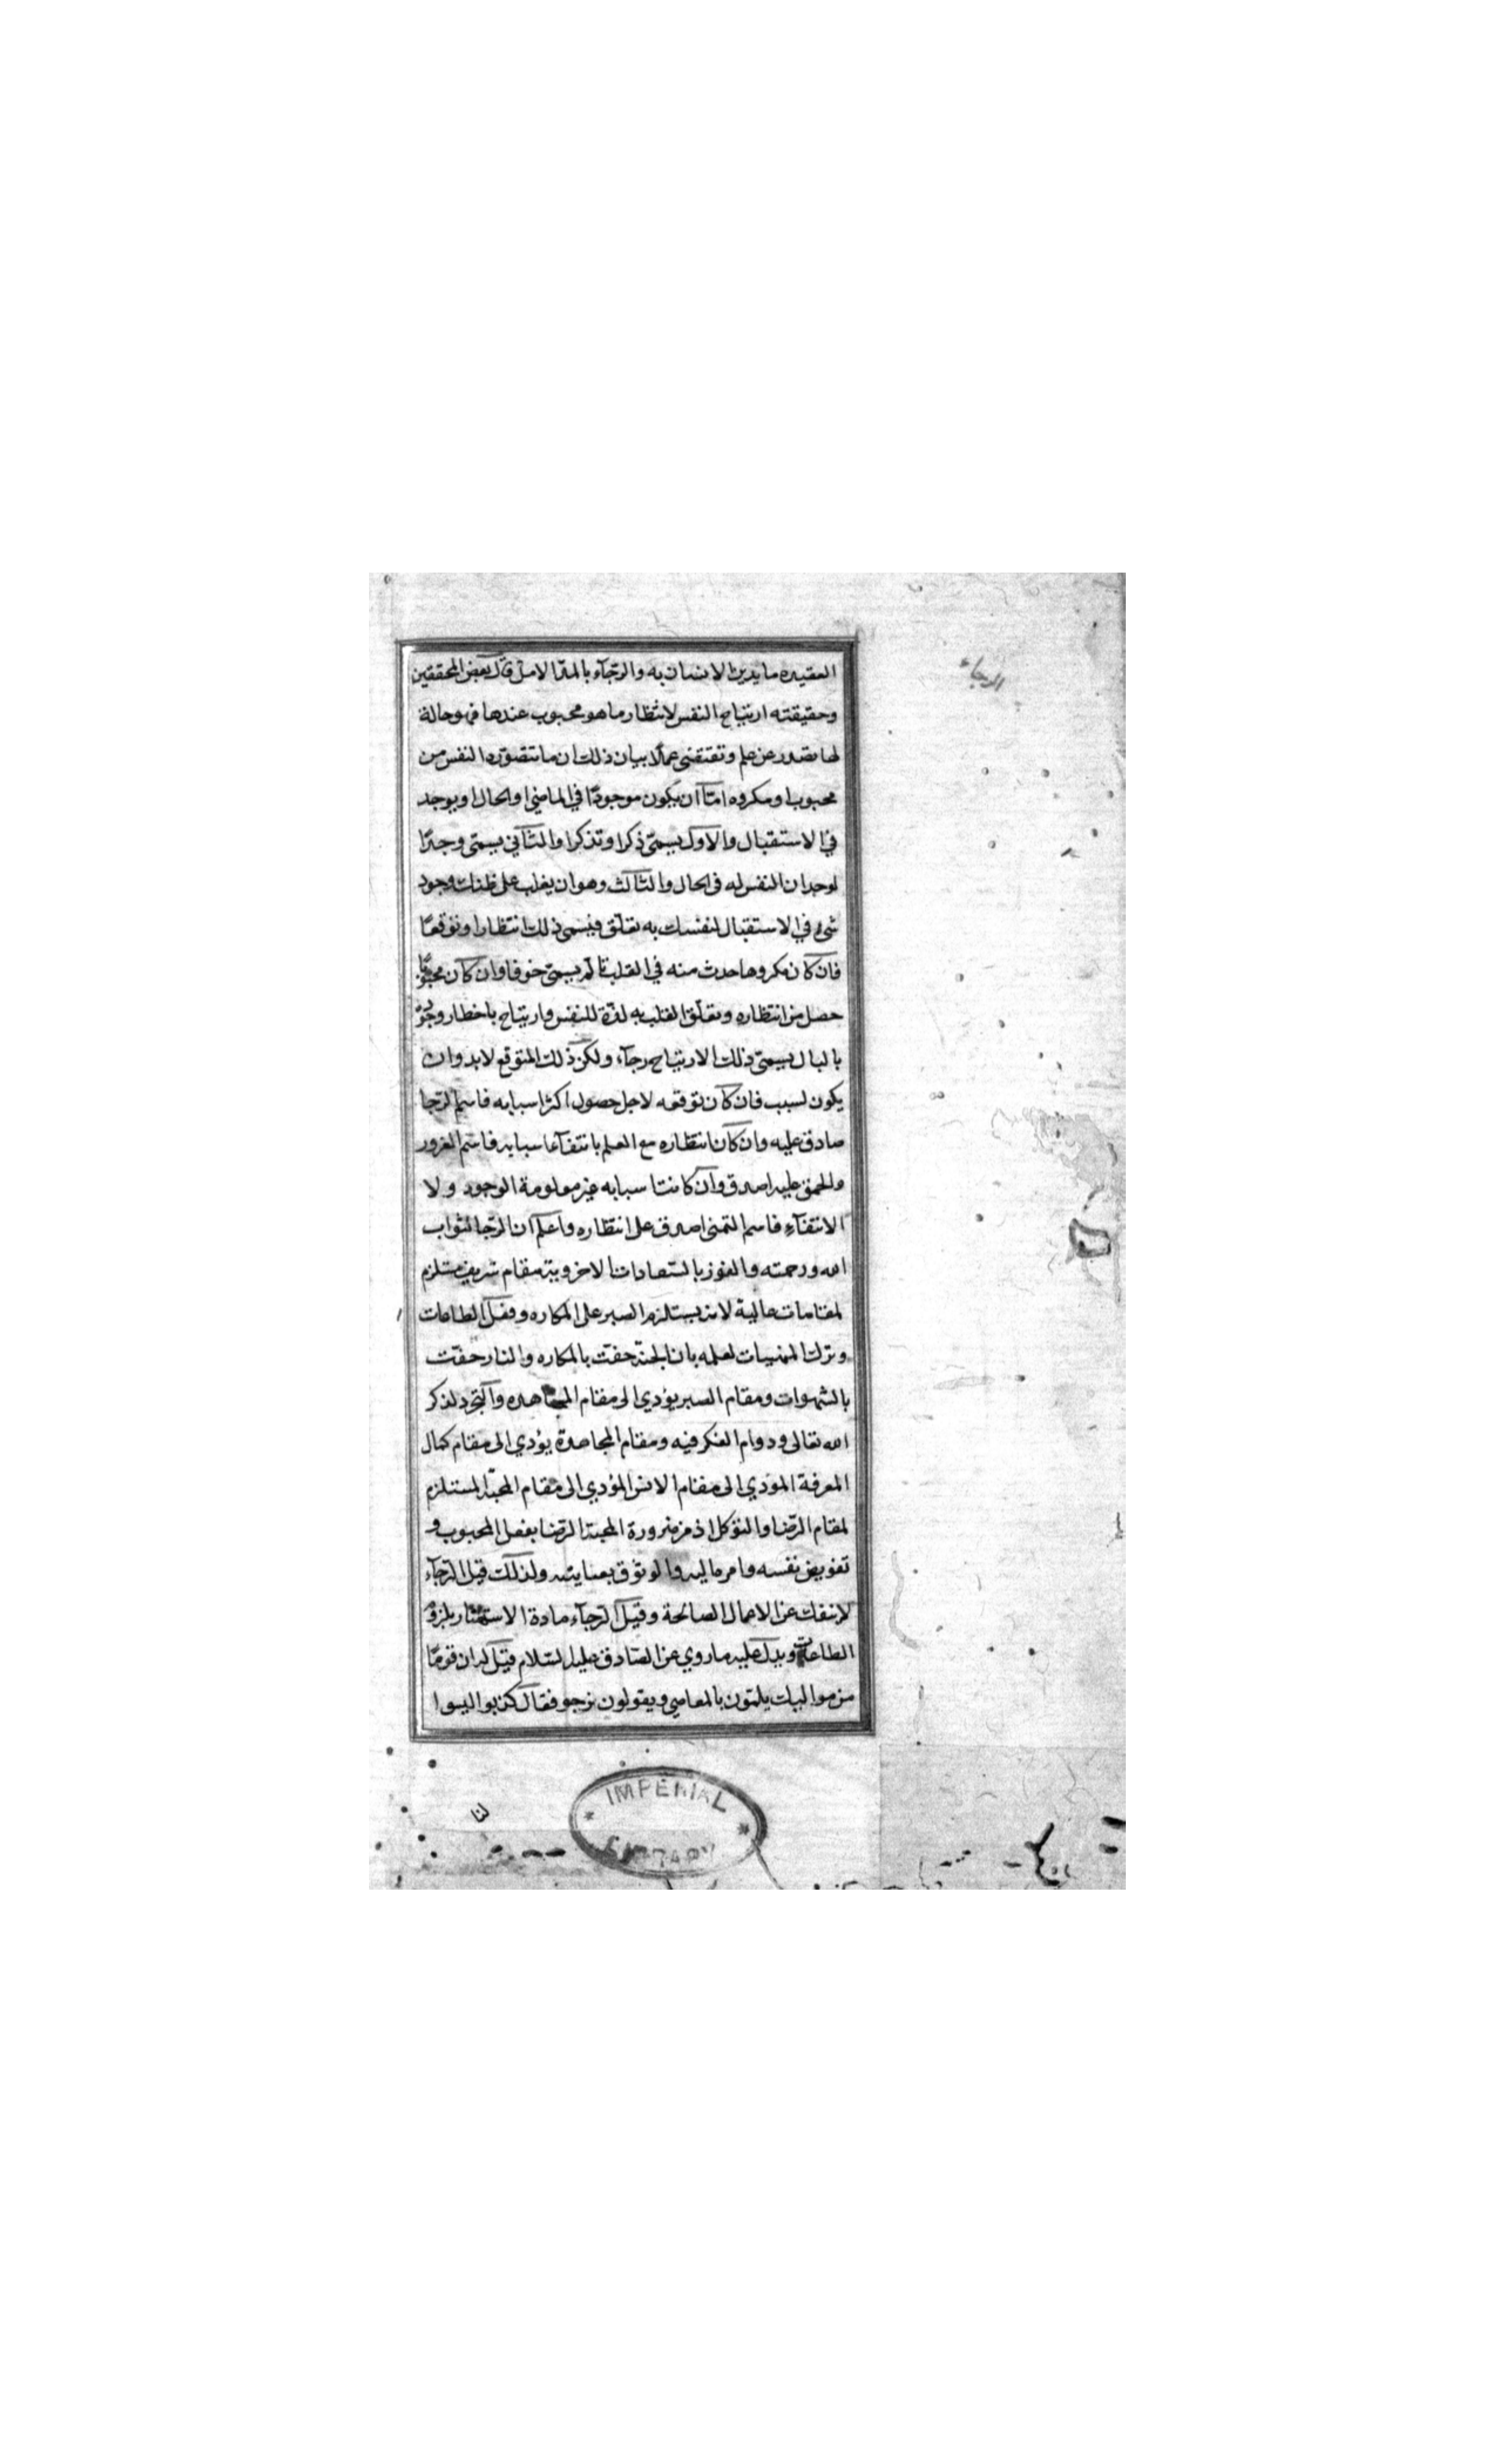 الرجاء
العقيده ما يدين الانسان به والرّجآء بالمدّ الامل قال بعض المحققين
وحقيقته ارتياح النفس لانتظار ما هو محبوب عندها فهو حالة
لها تصدر عن علم وتقتضى عملًا بيان ذلك ان ما تتصوّره النفس من
محبوب او مكروه امّا ان يكون موجودًا في الماضي او الحال او يوجد
في الاستقبال والاول يسمّى ذكرا وتذكرا والثآني يسمّى وجدًا
لوجدان النفس له في الحال والثالث وهو ان يغلب على ظنك وجود
شئ في الاستقبال لنفسك به تعلّق فيسمى ذلك انتظارا وتوقعًا
فان كان مكروها حدث منه في القلب تألّم يسمّى خوفا وان كان محبوبًا
حصل من انتظاره وتعلّق القلب به لذّة للنفس وارتياح باخطار وجوده
بالبال يسمّى ذلك الارتياح رجآء ولكن ذلك المتوقع لابد وان
يكون لسبب فان كان توقعه لاجل حصول اكثر اسبابه فاسم الرّجا
صادق عليه وان كان انتظاره مع العلم بانتفآء اسبابه فاسم الغرور
والحمق عليه اصدق وان كانت اسبابه غير معلومة الوجود ولا
الانتفآء فاسم التمنى اصدق على انتظاره واعلم ان الرّجا لثواب
الله ورحمته والفوز بالسّعادات الاخروية مقام شريف مستلزم
لمقامات عالية لانه يستلزم الصبر على المكاره وفعل الطاعات
وترك المنهيات لعلمه بان الجنّة حفّت بالمكاره والنار حفّت
بالشهوات ومقام الصبر يؤدي الى مقام المجاهده والتجرد لذكر
الله تعالى ودوام الفكر فيه ومقام المجاهدة يؤدي الى مقام كمال
المعرفة المؤدي الى مقام الانس المؤدي الى مقام المحبّة المستلزم
لمقام الرّضا والتوكل اذ من ضرورة المحبة الرّضا بفعل المحبوب و
تفويض نفسه وامره اليه والوثوق بعنايته ولذلك قيل الرّجآء
لا ينفك عن الاعمال الصالحة وقيل الرّجآء مادة الاستهتار بلزوم
الطاعات ويدل عليه ما روي عن الصّادق عليه السّلام قيل له ان قومًا
من مواليك يلمّون بالمعاصي ويقولون نرجو فقال كذبوا ليسوا
لنا
IMPERIAL
LIBRARY